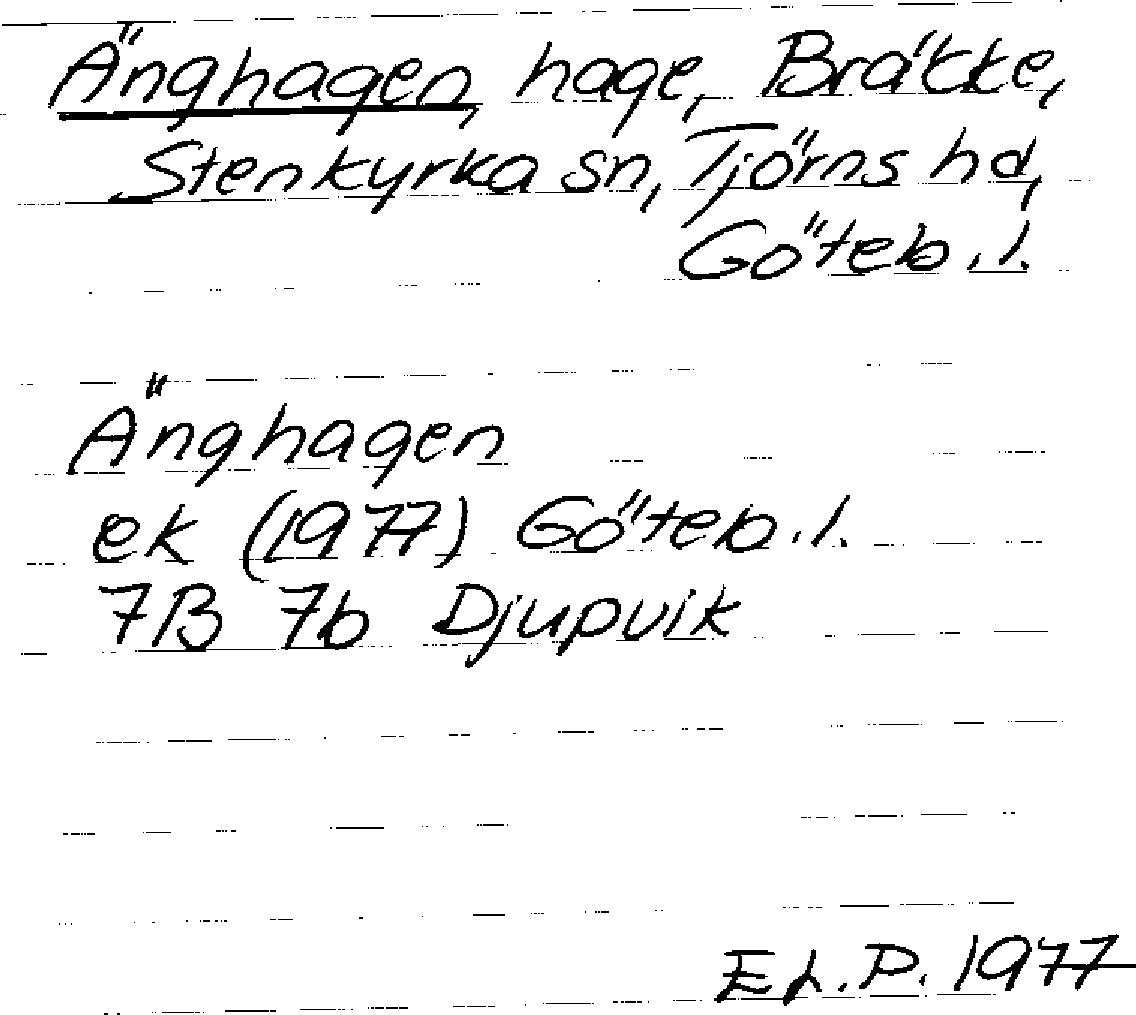 Änghagen, hage, Bräcke,
Stenkyrka sn, Tjörns hd,
Göteb. l.
Änghagen
ek (1977) Göteb. l.
7B 7b Djupvik
E L. P. 1977